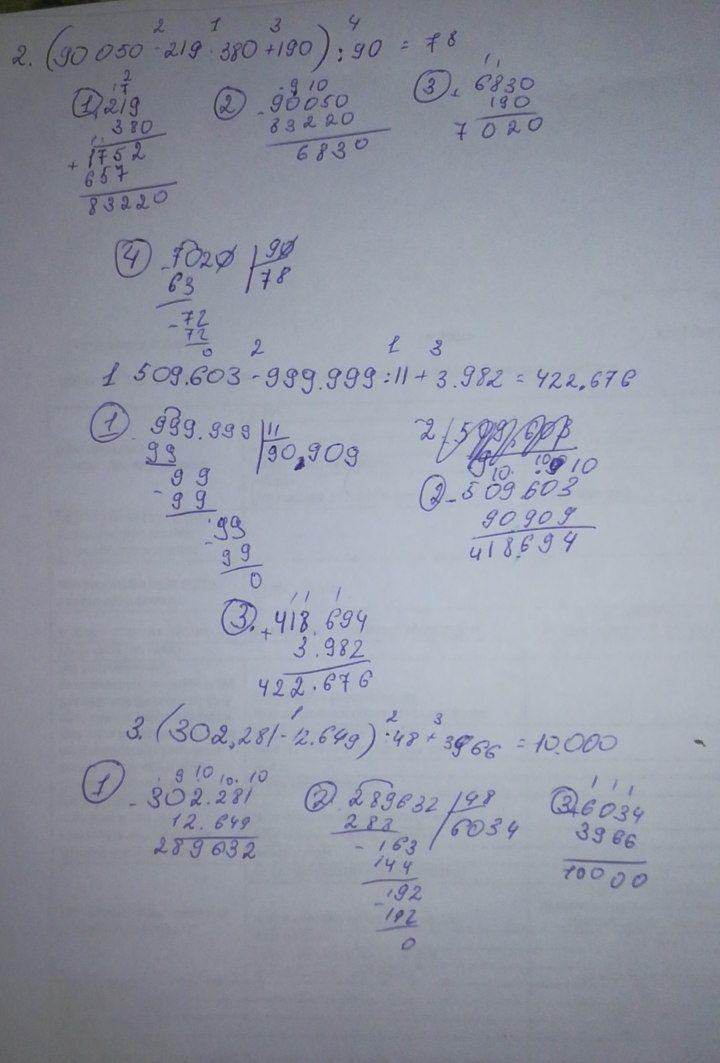 2 1 3 4
2. (90 050 - 219 · 380 + 190) : 90 = 78
2
17
1 219
380
11
+ 1752
657
83220
9 10
2 - 90050
83220
6830
1 1
3 + 6830
190
7 020
4 - 7020 | 90
63 | 78
- 72
72
0
2 1 3
1 509.603 - 999.999 : 11 + 3.982 = 422.676
1 - 999.999 | 11
99 | 90.909
- 99
99
- 99
99
0
10 10 10
2 - 509.603
90 909
418.694
1 1 1
3. + 418.694
3.982
422.676
1 2 3
3. (302,281 - 12.649) : 48 + 3966 = 10.000
9 10 10 10
1 - 302.281
12.649
289632
2 - 289632 | 48
288 | 6034
- 163
144
- 192
192
0
1 1 1
3 + 6034
3966
10000